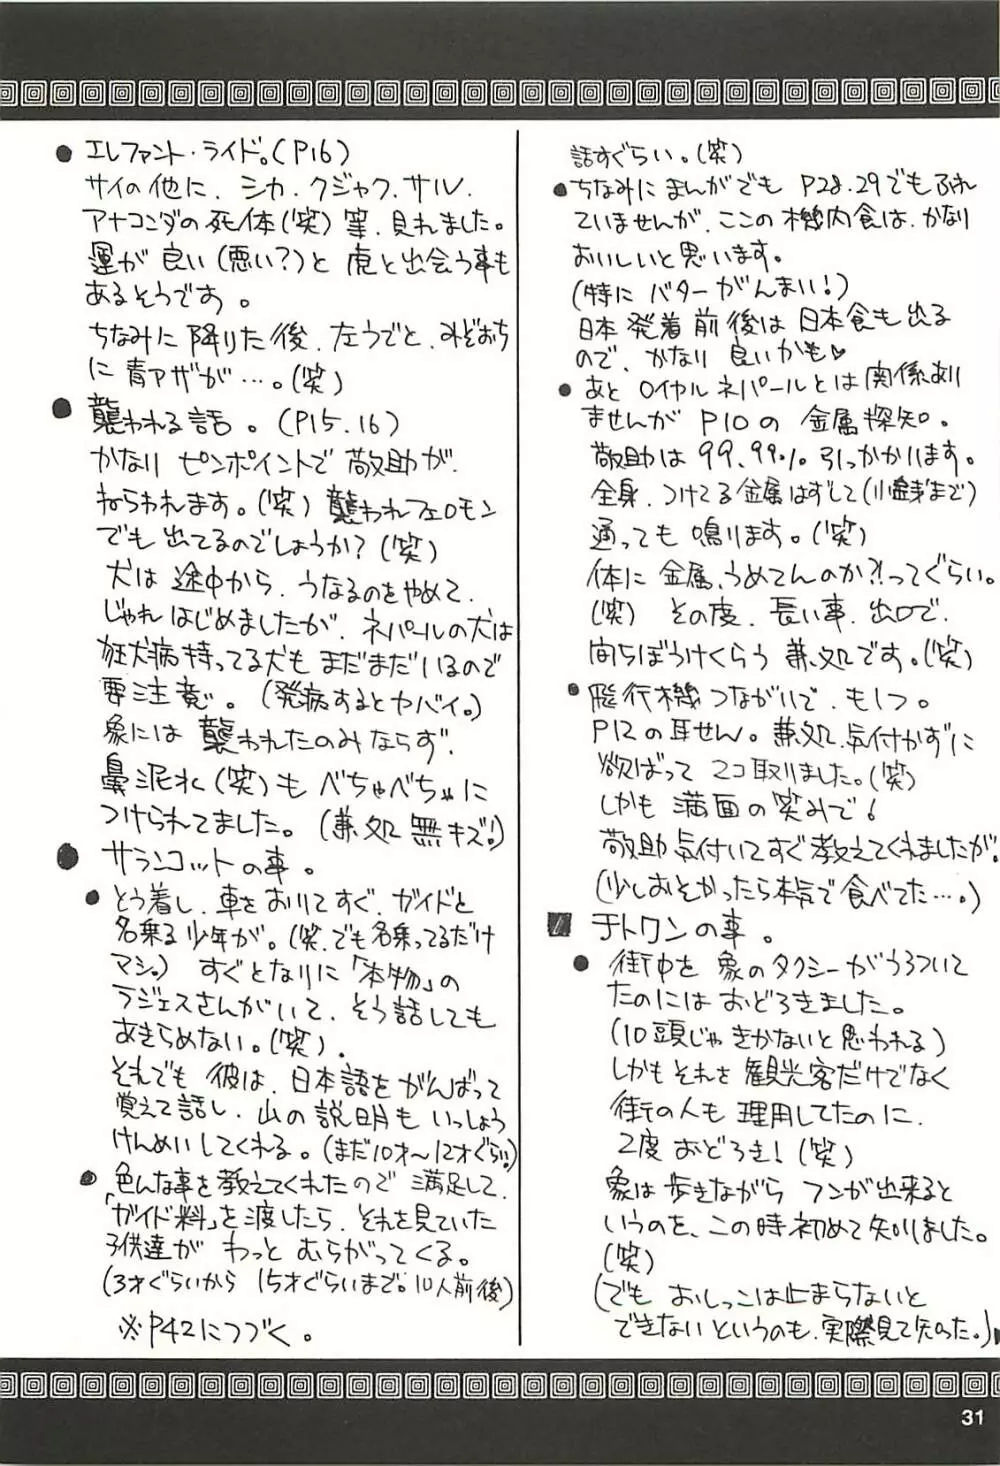 ● エレファント・ライド。(P16)
サイの他に、シカ、クジャク、サル、
アナコンダの死体(笑)等、見れました。
運が良い(悪い?)と虎と出会う事も
あるそうです。
ちなみに降りた後、左うでと、みぞおち
に青アザが…。(笑)
● 襲われる話。(P15、16)
かなりピンポイントで敬助が、
ねらわれます。(笑)襲われフェロモン
でも出てるのでしょうか?(笑)
犬は途中から、うなるのをやめて、
じゃれはじめましたが、ネパールの犬は
狂犬病持ってる犬もまだまだいるので
要注意。(発病するとヤバイ。)
象には襲われたのみならず、
鼻泥水(笑)もべちゃべちゃに
つけられてました。(兼処無キズ!)
● サランコットの事。
● とう着し、車をおりてすぐ、ガイドと
名乗る少年が。(笑、でも名乗ってるだけ
マシ。)すぐとなりに「本物」の
ラジェスさんがいて、そう話しても
あきらめない。(笑)、
それでも彼は、日本語をがんばって
覚えて話し、山の説明もいっしょう
けんめいしてくれる。(まだ10才〜12才ぐらい)
● 色んな事を教えてくれたので満足して、
「ガイド料」を渡したら、それを見ていた
子供達がわっとむらがってくる。
(3才ぐらいから15才ぐらいまで。10人前後)
※P42につづく。
話すぐらい。(笑)
● ちなみにまんがでもP28、29でもふれ
ていませんが、ここの機内食は、かなり
おいしいと思います。
(特にバターがんまい!)
日本発着前後は日本食も出る
ので、かなり良いかも♥
● あとロイヤルネパールとは関係あり
ませんがP10の金属探知。
敬助は99、99%引っかかります。
全身、つけてる金属はずして(小銭まで)
通っても鳴ります。(笑)
体に金属、うめてんのか?!ってぐらい。
(笑)その度、長い事、出口で、
待ちぼうけくらう兼処です。(笑)
● 飛行機つながりで、もし1つ。
P12の耳せん。兼処、気付かずに
欲ばって2コ取りました。(笑)
しかも満面の笑みで!
敬助気付いてすぐ教えてくれましたが、
(少しおそかったら本気で食べてた…。)
■ チトワンの事。
● 街中を象のタクシーがうろついて
たのにはおどろきました。
(10頭じゃきかないと思われる)
しかもそれを観光客だけでなく
街の人も理用してたのに、
2度おどろき!(笑)
象は歩きながらフンが出来ると
いうのを、この時初めて知りました。
(笑)
(でもおしっこは止まらないと
できないというのも、実際見て知った。)
31